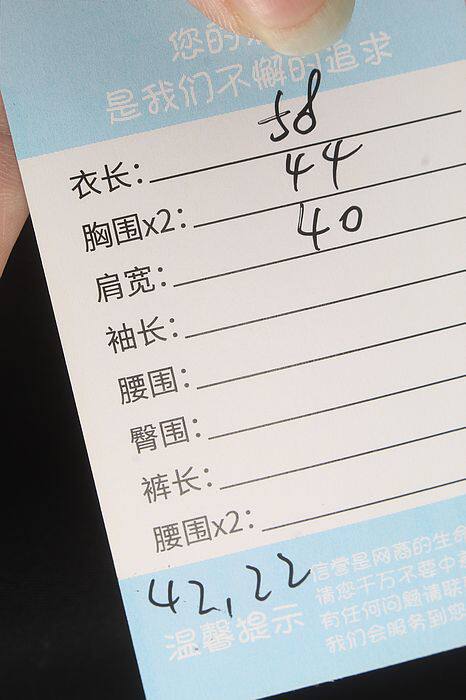 您的
是我们不懈的追求
衣长: 58
胸围x2: 44
肩宽: 40
袖长:
腰围:
臀围:
裤长:
腰围x2:
42,22
温馨提示
信誉是网商的生命
请您千万不要中
有任何问题请联
我们会服务到您